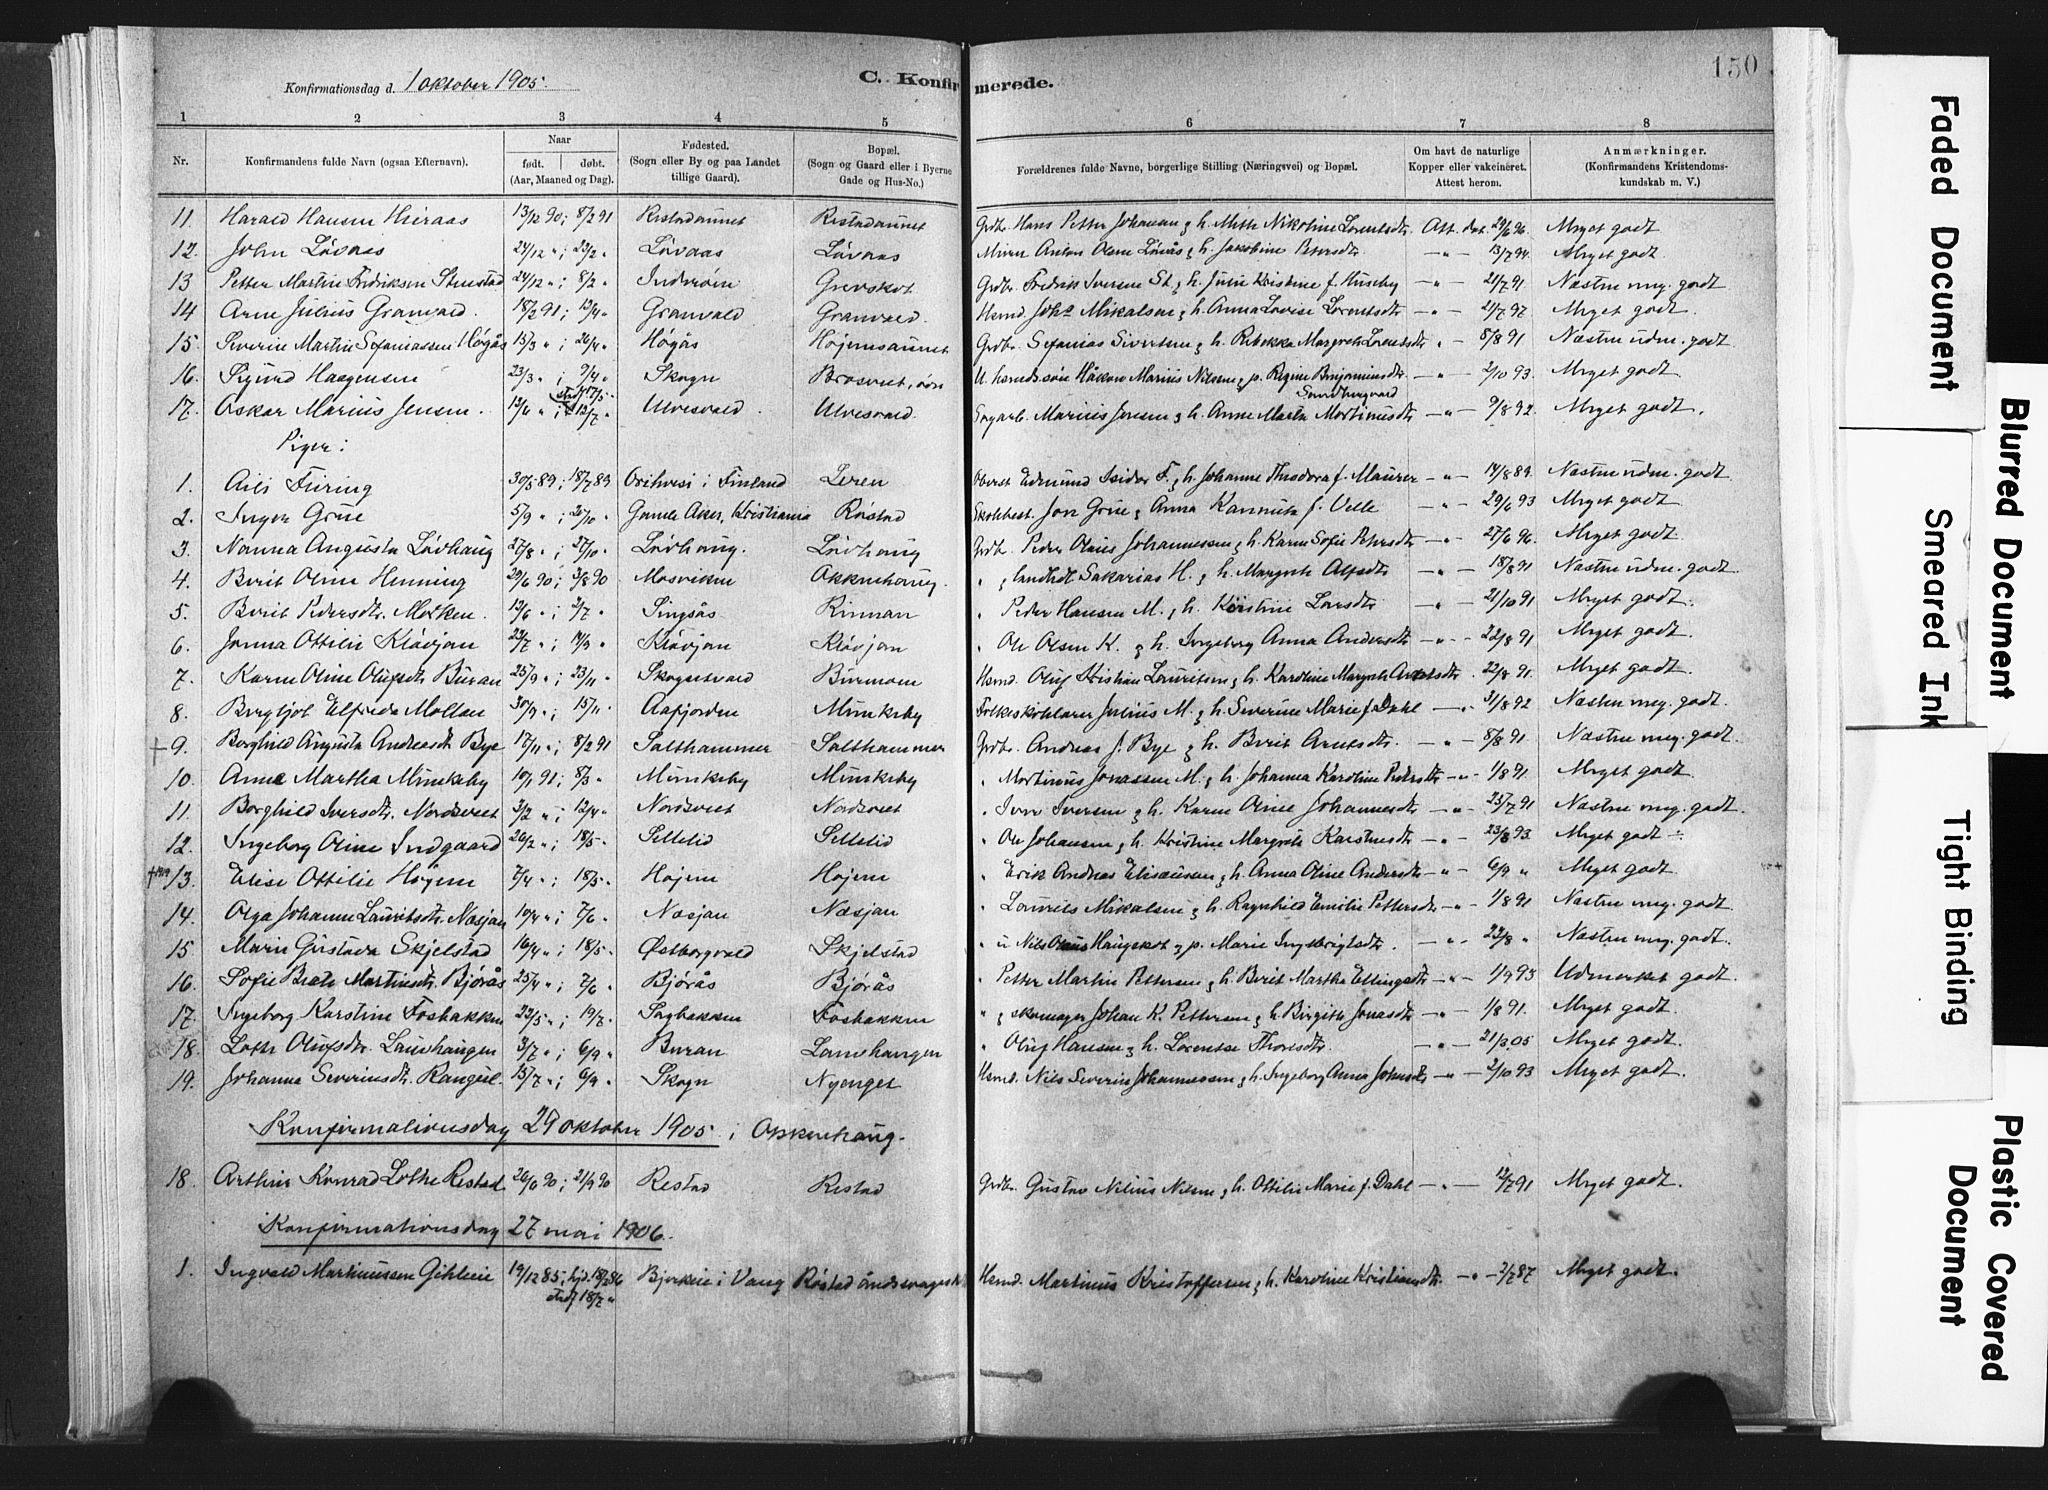 150
Konfirmationsdag d. 1 oktober 1905.
C. Konfirmerede.
1 2 3 4 5 6 7 8
Nr. Konfirmandens fulde Navn (ogsaa Efternavn). Naar født. døbt. (Aar, Maaned og Dag). Fødested. (Sogn eller By og paa Landet tillige Gaard). Bopæl. (Sogn og Gaard eller i Byerne Gade og Hus-No.) Forældrenes fulde Navne, borgerlige Stilling (Næringsvei) og Bopæl. Om havt de naturlige Kopper eller vakcineret. Attest herom. Anmærkninger. (Konfirmandens Kristendomskundskab m. V.)
11 Harald Hansen Hieraas 13/12 90; 8/2 91 Restadaunet Restadaunet Grdbr. Hans Petter Johansen & h. Meth Nikoline Lorentsdtr. Att. dat. 29/6 96 Meget godt
12. John Løvaas 24/12 "; 23/2 " Løvaas Løvaas Anton Olsen Løvås & h. Jakobine Petersdtr " 13/7 94. Meget godt
13 Petter Martin Fredriksen Stenstad 24/12 "; 8/2 " Inderøen Grevskot Grdbr. Fredrik Iversen St. & h. Julie Kristine f. Huseby " 21/7 91 Næsten meg. godt
14 Arne Julius Granvald. 18/2 91; 13/4 " Granvald Granvald. Husmd. Johs Mikalsen & h. Anna Lovise Lorentsdtr " 21/7 97 Meget godt
15. Severin Martin Sefaniassen Høgås 15/3 "; 26/4 " Høgås Højemsaunet Grdbr. Sefanias Sivertsen & h. Rebekka Margreth Lorentsdtr " 8/8 91 Næsten udm. godt
16. Sigurd Haagensen 23/3 "; 9/4 " Skogn Brasveet, øvre U. husmdssøn Håkon Marius Nilsen & p. Regine Benjaminsdtr. " 2/10 93. Meget godt
stadf. 17/5 " Sandbergvald
17. Oskar Marius Jensen. 13/4 " 13/7 " Ulvesvald. Ulvesvald. Sagarb. Marius Jensen & h. Anne Marta Mortinusdtr " 9/8 92. Meget godt.
Piger:
1. Aili Türing 30/5 89; 18/7 89 Orihvesi i Finland Leren Oberst Edmund Isidor F. & h. Johanne Theodora f. Maurer " 14/8 89. Næsten udm. godt
2. Inger Grue 5/9 "; 26/10 " Gamle Aker, Kristiania Røstad Skolebest. Jon Grue & Anna f. Velle " 29/6 93 Meget godt
3. Nanna Augusta Løvhaug 27/8 "; 27/10 " Løvhaug. Løvhaug Grdbr. Peder Olaus Johannessen & h. Karen Sofie Petersdtr " 27/6 96. Meget godt.
4. Berit Oline Henning 29/6 90; 3/8 90 Mosviken Okkenhaug. " & landhdl. Sakarias H. & h. Margreth Alfsdtr " 18/8 91 Næsten udm. godt
5. Berit Pedersdtr. Mosken. 13/6 "; 2/7 " Singsås Rinnan " Peder Hansen M. & h. Kristine Larsdtr " 21/10 91 Meget godt.
6. Janna Ottilie Kløvjan 22/7 "; 14/9 " Kløvjan Kløvjan " Ole Olsen K. & h. Ingeborg Anna Andersdtr " 22/8 91 Meget godt.
7. Karen Oline Olufsdtr Buran 25/9 "; 23/11 " Skogestvald Burmoen Husmd. Oluf Kristian Lauritsen & h. Karoline Margreth Arntsdtr. 22/8 91. Meget godt.
8. Bergljot Elfrida Mollan 30/9 "; 15/11 " Aafjorden Munkeby Folkeskolelærer Julius M. & h. Severine Marie f. Dahl " 31/8 92 Næsten meg. godt.
† 9. Borghild Augusta Andreasdt Bye 17/11 "; 8/2 91 Salthammer Salthammer Grdbr. Andreas J. Bye & h. Berit Arntsdtr. " 8/8 91. Næsten meg. godt.
10. Anne Martha Munkeby 10/1 91; 8/3 " Munkeby Munkeby " Mortinus Jonassen M. & h. Johanna Karoline Pedersdtr " 1/8 91 Meget godt.
11. Borghild Iversdtr. Nordsveet 3/2 "; 12/4 " Nordsveet Nordsveet " Iver Iversen & h. Karen Oline Johannesdtr " 23/7 91 Næsten meg. godt.
12. Ingeborg Oline Indgaard 26/2 "; 18/5 " Settelid Settelid " Ole Johansen & h. Kristine Margrete Karstensdtr " 23/8 93 Meget godt
† 1919 13. Elise Ottilie Højem 7/4 "; 18/5 " Højem Højem " Erik Andreas Eliseussen & h. Anna Oline Andersdtr " 6/9 " Meget godt
14. Olga Johanne Lauritsdtr. Næsjan 10/4 "; 7/6 " Næsjan Næsjan " Laurits Mikalsen & h. Ragnhild Emilie Pettersdtr " 1/8 91 Næsten meg. godt
15 Marie Gustava Skjelstad 16/4 "; 18/5 " Østborgvald Skjelstad " u Nils Olaus Haugskot & p. Marie Ingebrigtsdtr. " 22/8 " Næsten meg. godt.
16. Sofie Beate Martinsdtr. Bjørås 25/4 "; 7/6 " Bjørås Bjørås " Petter Martin Pettersen & h. Berit Martha Ellingsdtr " 1/9 93 Udmerket godt.
17. Ingeborg Karstine Fosbakken 22/5 "; 19/7 " Sagbakken Fosbakken " & skomager Johan K. Pettersen & h. Birgitte Jonasdtr " 1/8 91. Meget godt.
18. Lotte Olufsdtr. Lamhaugen 3/7 "; 6/9 " Buran Lamhaugen " Oluf Hansen & h. Lorentse Thoresdtr. " 21/3 05 Meget godt.
19. Johanna Severinsdtr. Rangul. 15/7 "; 6/9 " Skogn Nyenget Husmd. Nils Severin Johannessen & h. Ingeborg Anna Johnsdtr " 2/10 93 Meget godt.
Konfirmationsdag 29 oktober 1905 i Okkenhaug.
18. Arthur Konrad Lothe Restad 26/6 90; 21/9 90 Restad Restad Grdbr. Gustav Nilius Nilsen & h. Ottilie Marie f. Dahl " 12/7 91 Meget godt.
Konfirmationsdag 27 mai 1906.
1. Ingvald Martinussen Gihleie 19/12 85; hjd. 18/2 86 Bjerkeie i Vang Røstad åndssvageskole Husmd. Martinus Kristoffersen & h. Karoline Kristiansdtr. " 2/7 87 Meget godt.
stadf 18/7 "
Faded Document
Blurred Document
Smeared Ink
Tight Binding
Plastic Covered Document